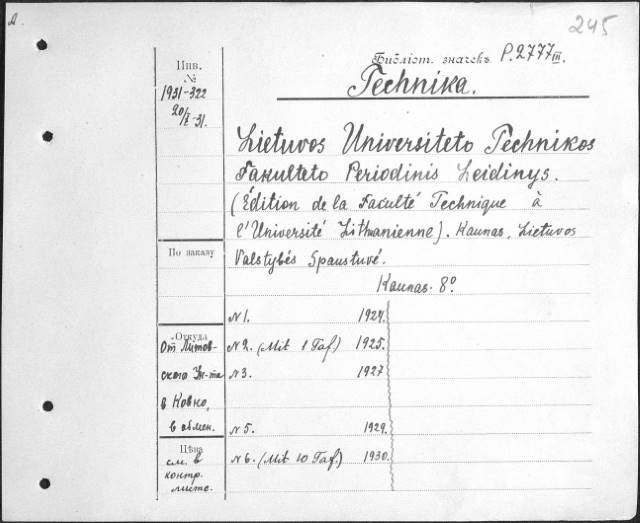 A.
245
Инв. №
1931-322
20/I-31.
Библіот. значекъ P.2777 III.
Technika.
Lietuvos Universiteto Technikos
Fakulteto Periodinis Leidinys.
(Édition de la Faculté Technique à
l'Université Lithuanienne). Kaunas. Lietuvos
Valstybės Spaustuvė.
Kaunas. 8°.
По заказу
N 1. 1924.
Откуда
От Литов-
N 2. (Mit 1 Taf) 1925.
ского Ун-та
N 3. 1927
в Ковно,
в обмен.
N 5. 1929.
Цѣна
см. в
контр.
листе.
N 6. (Mit 10 Taf.) 1930.